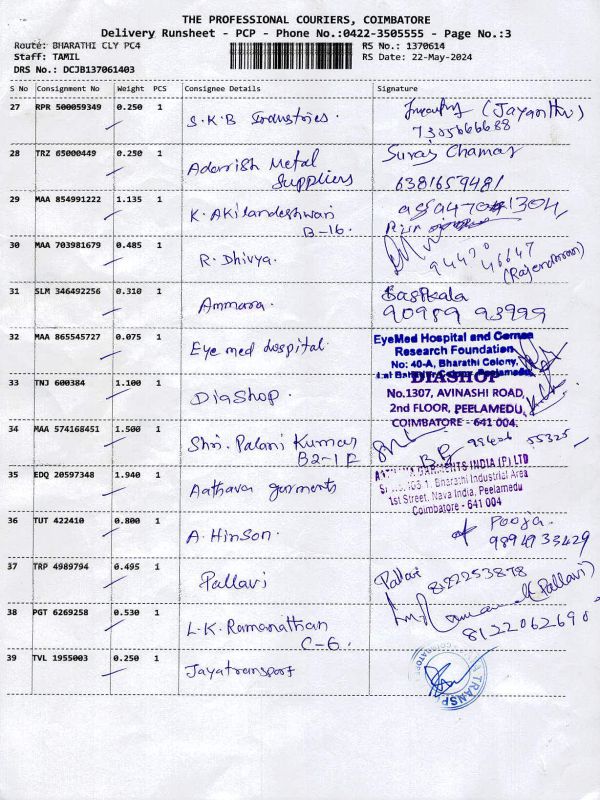 THE PROFESSIONAL COURIERS, COIMBATORE
Delivery Runsheet - PCP - Phone No.:0422-3505555 - Page No.:3
Route: BHARATHI CLY PC4
RS No.: 1370614
Staff: TAMIL
RS Date: 22-May-2024
DRS No.: DCJB137061403
S No Consignment No Weight PCS Consignee Details Signature
27 RPR 500059349 0.250 1 S.K.B Industries. (Jayanthi)
7305666688
28 TRZ 65000449 0.250 1 Adarrish Metal Suraj Chamay
Suppliers 6381659481
29 MAA 854991222 1.135 1 K. Akilandeshwari
B-16.
30 MAA 703981679 0.485 1 R. Dhivya. 94420 46647
(Rajendran)
31 SLM 346492256 0.310 1 Ammara. Baskala
90989 93999
32 MAA 865545727 0.075 1 Eye med hospital. EyeMed Hospital and Cornea
Research Foundation
No: 40-A, Bharathi Colony,
33 TNJ 600384 1.100 1 DiaShop. DIASHOP
No.1307, AVINASHI ROAD,
2nd FLOOR, PEELAMEDU,
COIMBATORE - 641 004.
34 MAA 574168451 1.500 1 Shri. Palani Kumar
B2-1F 55325
35 EDQ 20597348 1.940 1 Aathava garments GARMENTS INDIA (P) LTD
1, Bharathi Industrial Area
1st Street, Nava India, Peelamedu
Coimbatore - 641 004
36 TUT 422410 0.800 1 A. Hinson. Pooja.
9894933429
37 TRP 4989794 0.495 1 Pallavi Pallavi 8122253878
(Pallavi)
38 PGT 6269258 0.530 1 L.K. Ramanathan
C-6. 8122062690
39 TVL 1955003 0.250 1 Jayatransport